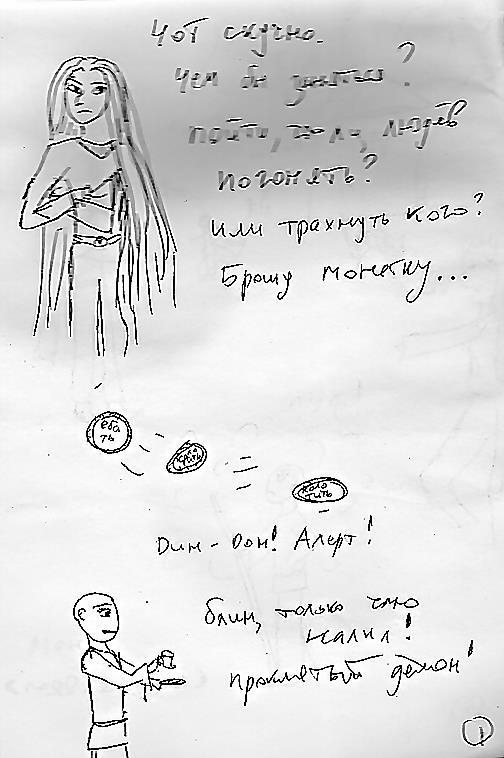 Чот скучно.
Чем бы заняться?
Пойти, что ли, людей
погонять?
Или трахнуть кого?
Брошу монетку...
еба
ть
коло
тить
Дин-дон! Алерт!
блин, только чаю
налил!
проклятый демон!
1